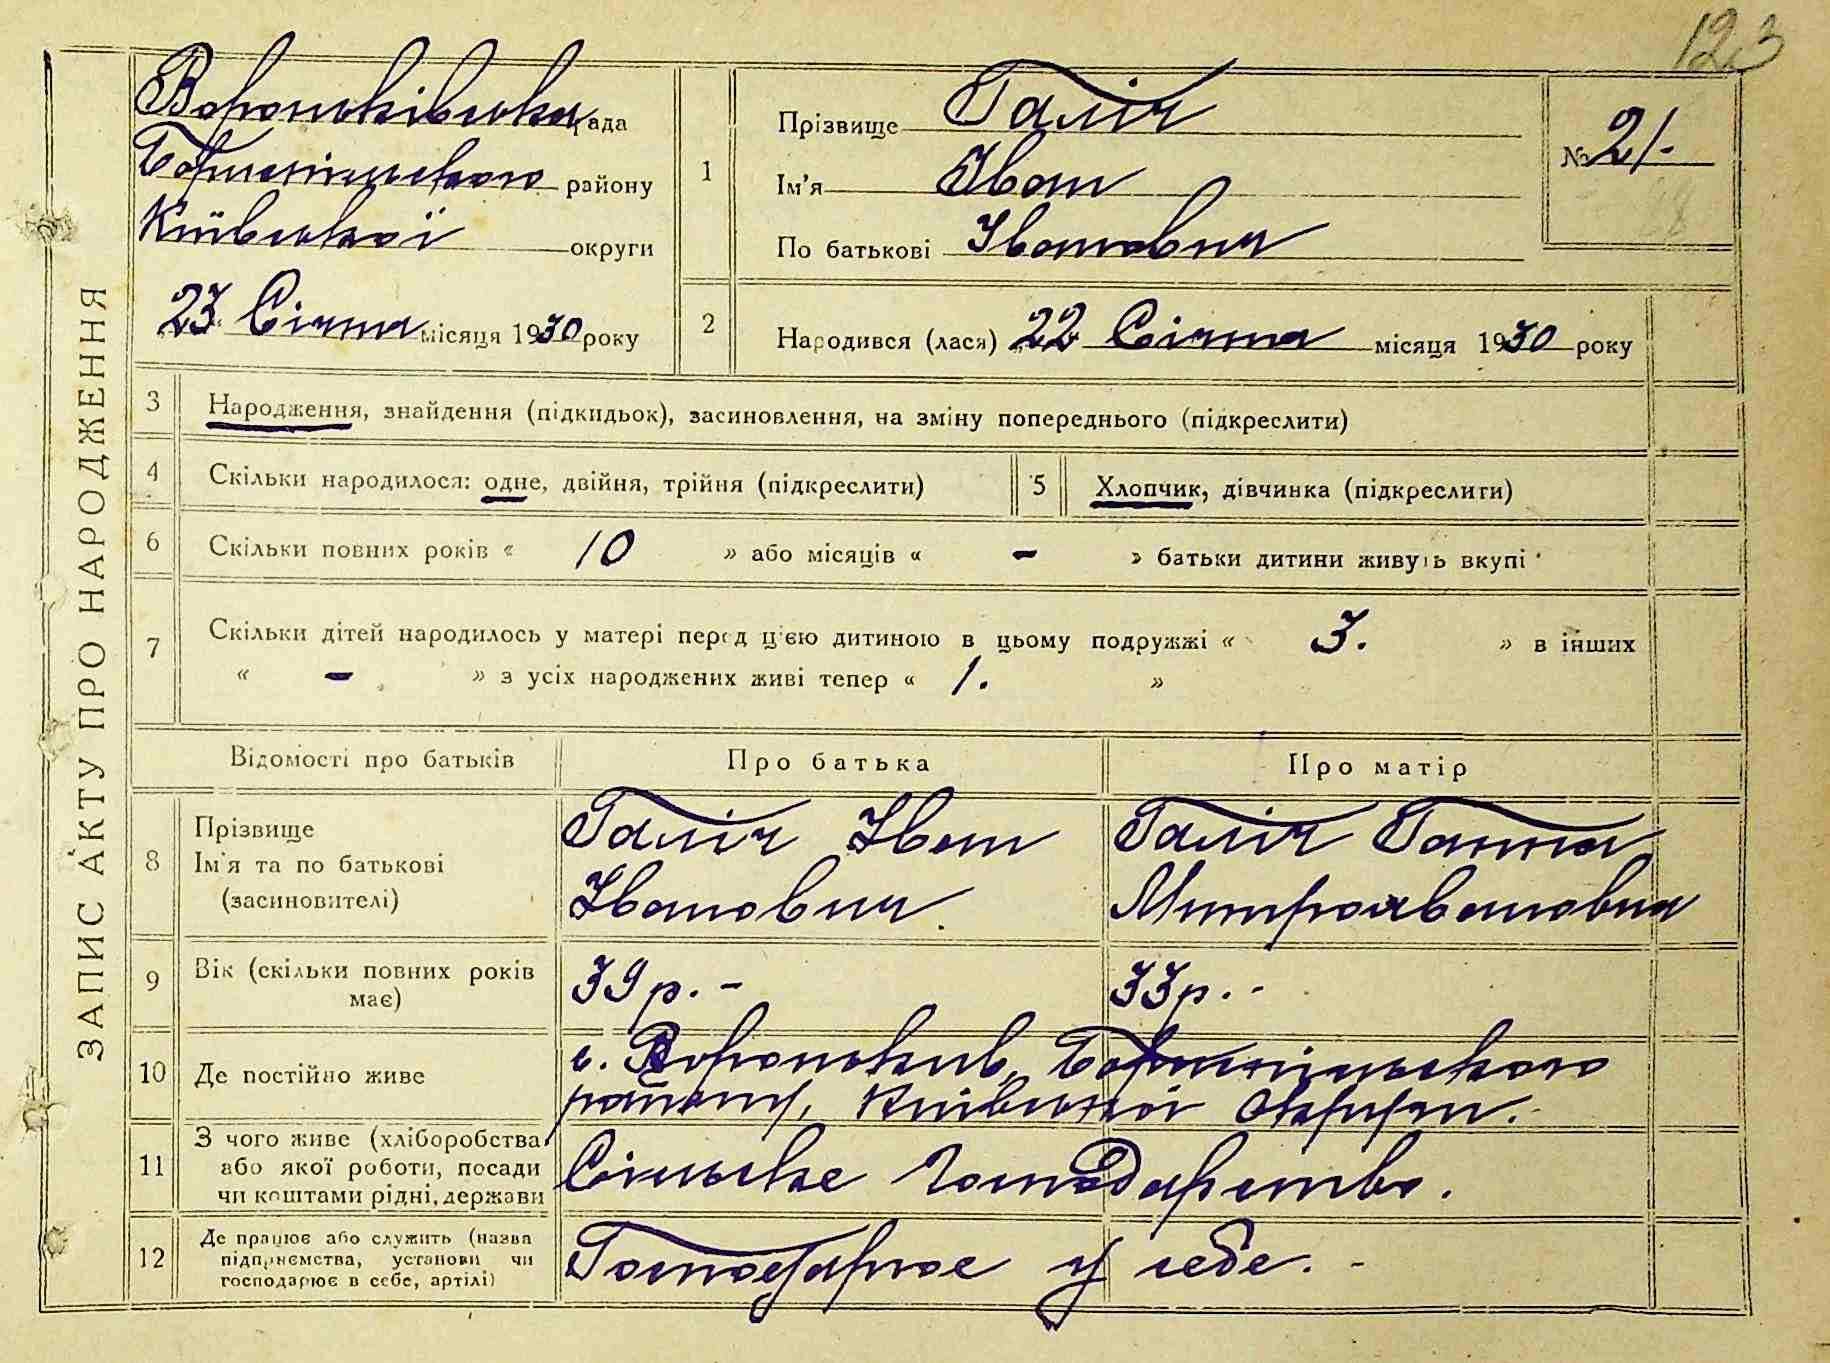 123
ЗАПИС АКТУ ПРО НАРОДЖЕННЯ
Вороньківська рада
Бориспільського району
Київської округи
23 Січня місяця 1930 року
1
Прізвище Галіч
Ім'я Іван
По батькові Іванович
№ 21.
2
Народився (лася) 22 Січня місяця 1930 року
3 Народження, знайдення (підкидьок), засиновлення, на зміну попереднього (підкреслити)
4 Скільки народилося: одне, двійня, трійня (підкреслити) 5 Хлопчик, дівчинка (підкреслити)
6 Скільки повних років « 10 » або місяців « - » батьки дитини живуть вкупі
7 Скільки дітей народилось у матері перед ц'ею дитиною в цьому подружжі « 3. » в інших
« - » з усіх народжених живі тепер « 1. »
Відомості про батьків Про батька Про матір
8 Прізвище
Ім'я та по батькові
(засиновителі)
Галіч Іван
Іванович.
Галіч Ганна
Митрохвановна
9 Вік (скільки повних років
має)
39 р. -
33 р. -
10 Де постійно живе
с. Вороньків, Бориспільського
району, Київської Округи.
11 З чого живе (хліборобства
або якої роботи, посади
чи коштами рідні, держави
Сільське Господарство.
12 Де працює або служить (назва
підприємства, установи чи
господарює в себе, артілі)
Господарює у себе. -